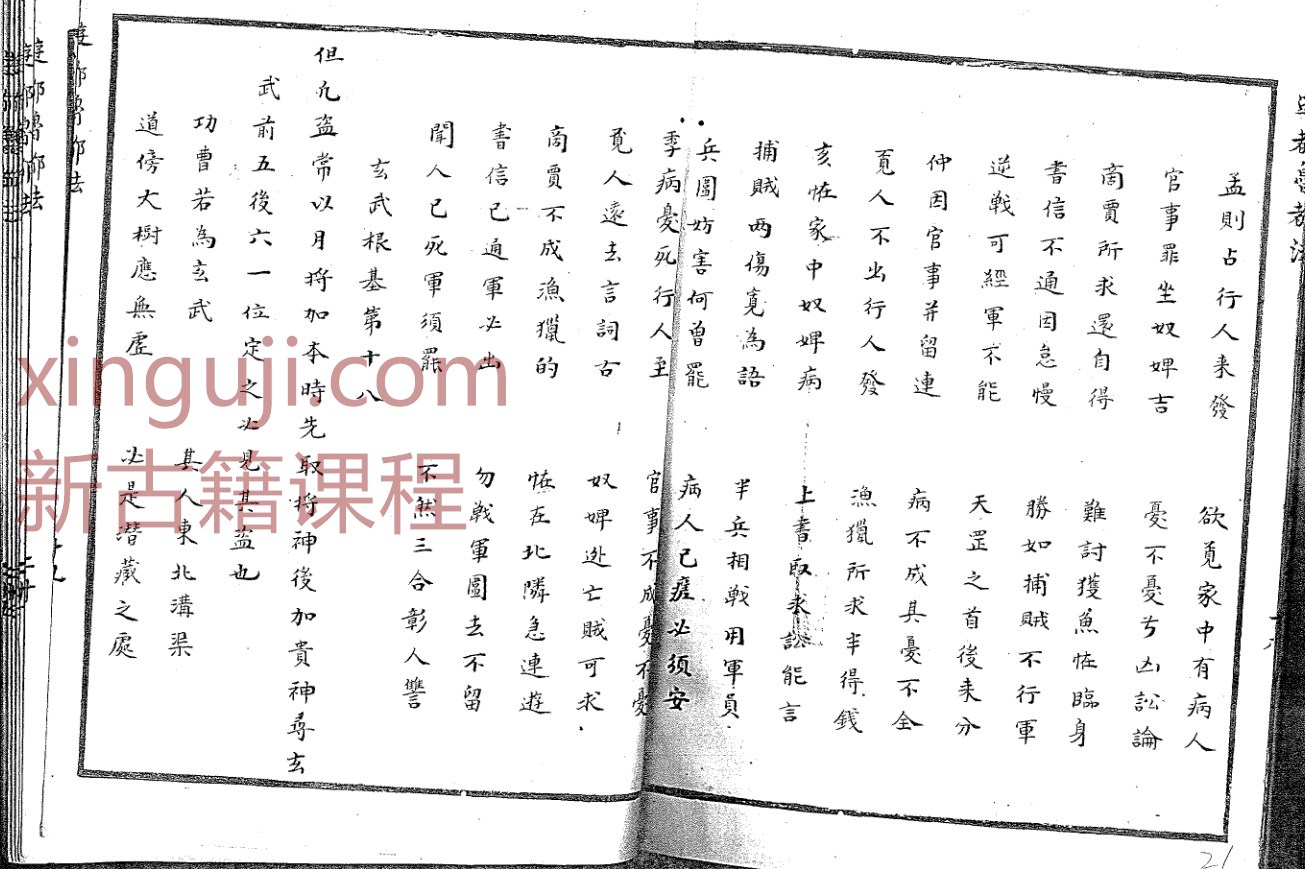 孟則占行人来發　欲覓家中有病人
官事罪坐奴婢吉　憂不憂兮凶訟論
商賈所求還自得　難討獲魚恠臨身
書信不通因怠慢　勝如捕賊不行軍
逆戦可經軍不能　天罡之首後来分
仲因官事并留連　病不成其憂不全
覓人不出行人發　漁獵所求半得錢
亥恠家中奴婢病　上書取求訟能言
捕賊两傷寃為語　半兵相戦用軍員
兵圖妨害何曾罷　病人已痊必須安
季病憂死行人至　官事不成憂不憂
覓人遠去言詞古　奴婢逃亡賊可求
商賈不成漁獵的　恠在北隣急連遊
書信已通軍必出　勿戦軍圖去不留
聞人已死軍須罪　不然三合彰人讐
玄武根基第十八
但凢盗常以月將加本時先取將神後加貴神尋玄
武前五後六一位定之必見其盗也
功曹若為玄武　其人東北溝渠
道傍大樹應無虚　必是潜藏之處
xinguji.com
新古籍课程
21